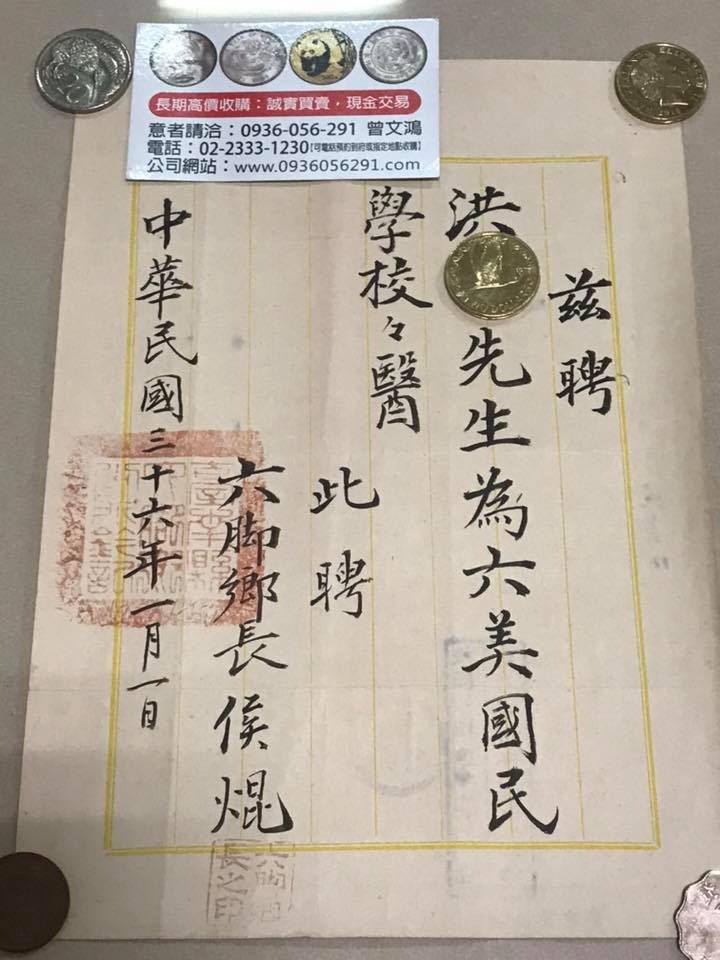 長期高價收購：誠實買賣，現金交易
意者請洽：0936-056-291 曾文鴻
電話：02-2333-1230【可電話預約到府或指定地點收購】
公司網站：www.0936056291.com
茲聘
洪 先生為六美國民
學校々醫
此聘
六脚鄉長侯焜
中華民國三十六年一月一日
六脚鄉
長之印